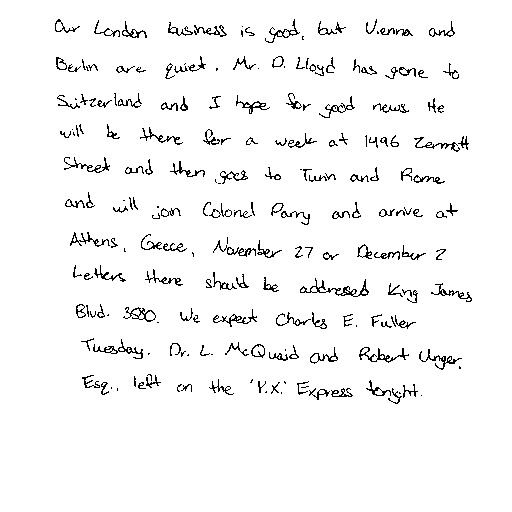 Our London business is good, but Vienna and
Berlin are quiet. Mr. D. Lloyd has gone to
Switzerland and I hope for good news. He
will be there for a week at 1496 Zermott
Street and then goes to Turin and Rome
and will join Colonel Parry and arrive at
Athens, Greece, November 27 or December 2
Letters there should be addressed King James
Blvd. 3580. We expect Charles E. Fuller
Tuesday. Dr. L. McQuaid and Robert Unger,
Esq., left on the 'Y.X.' Express tonight.